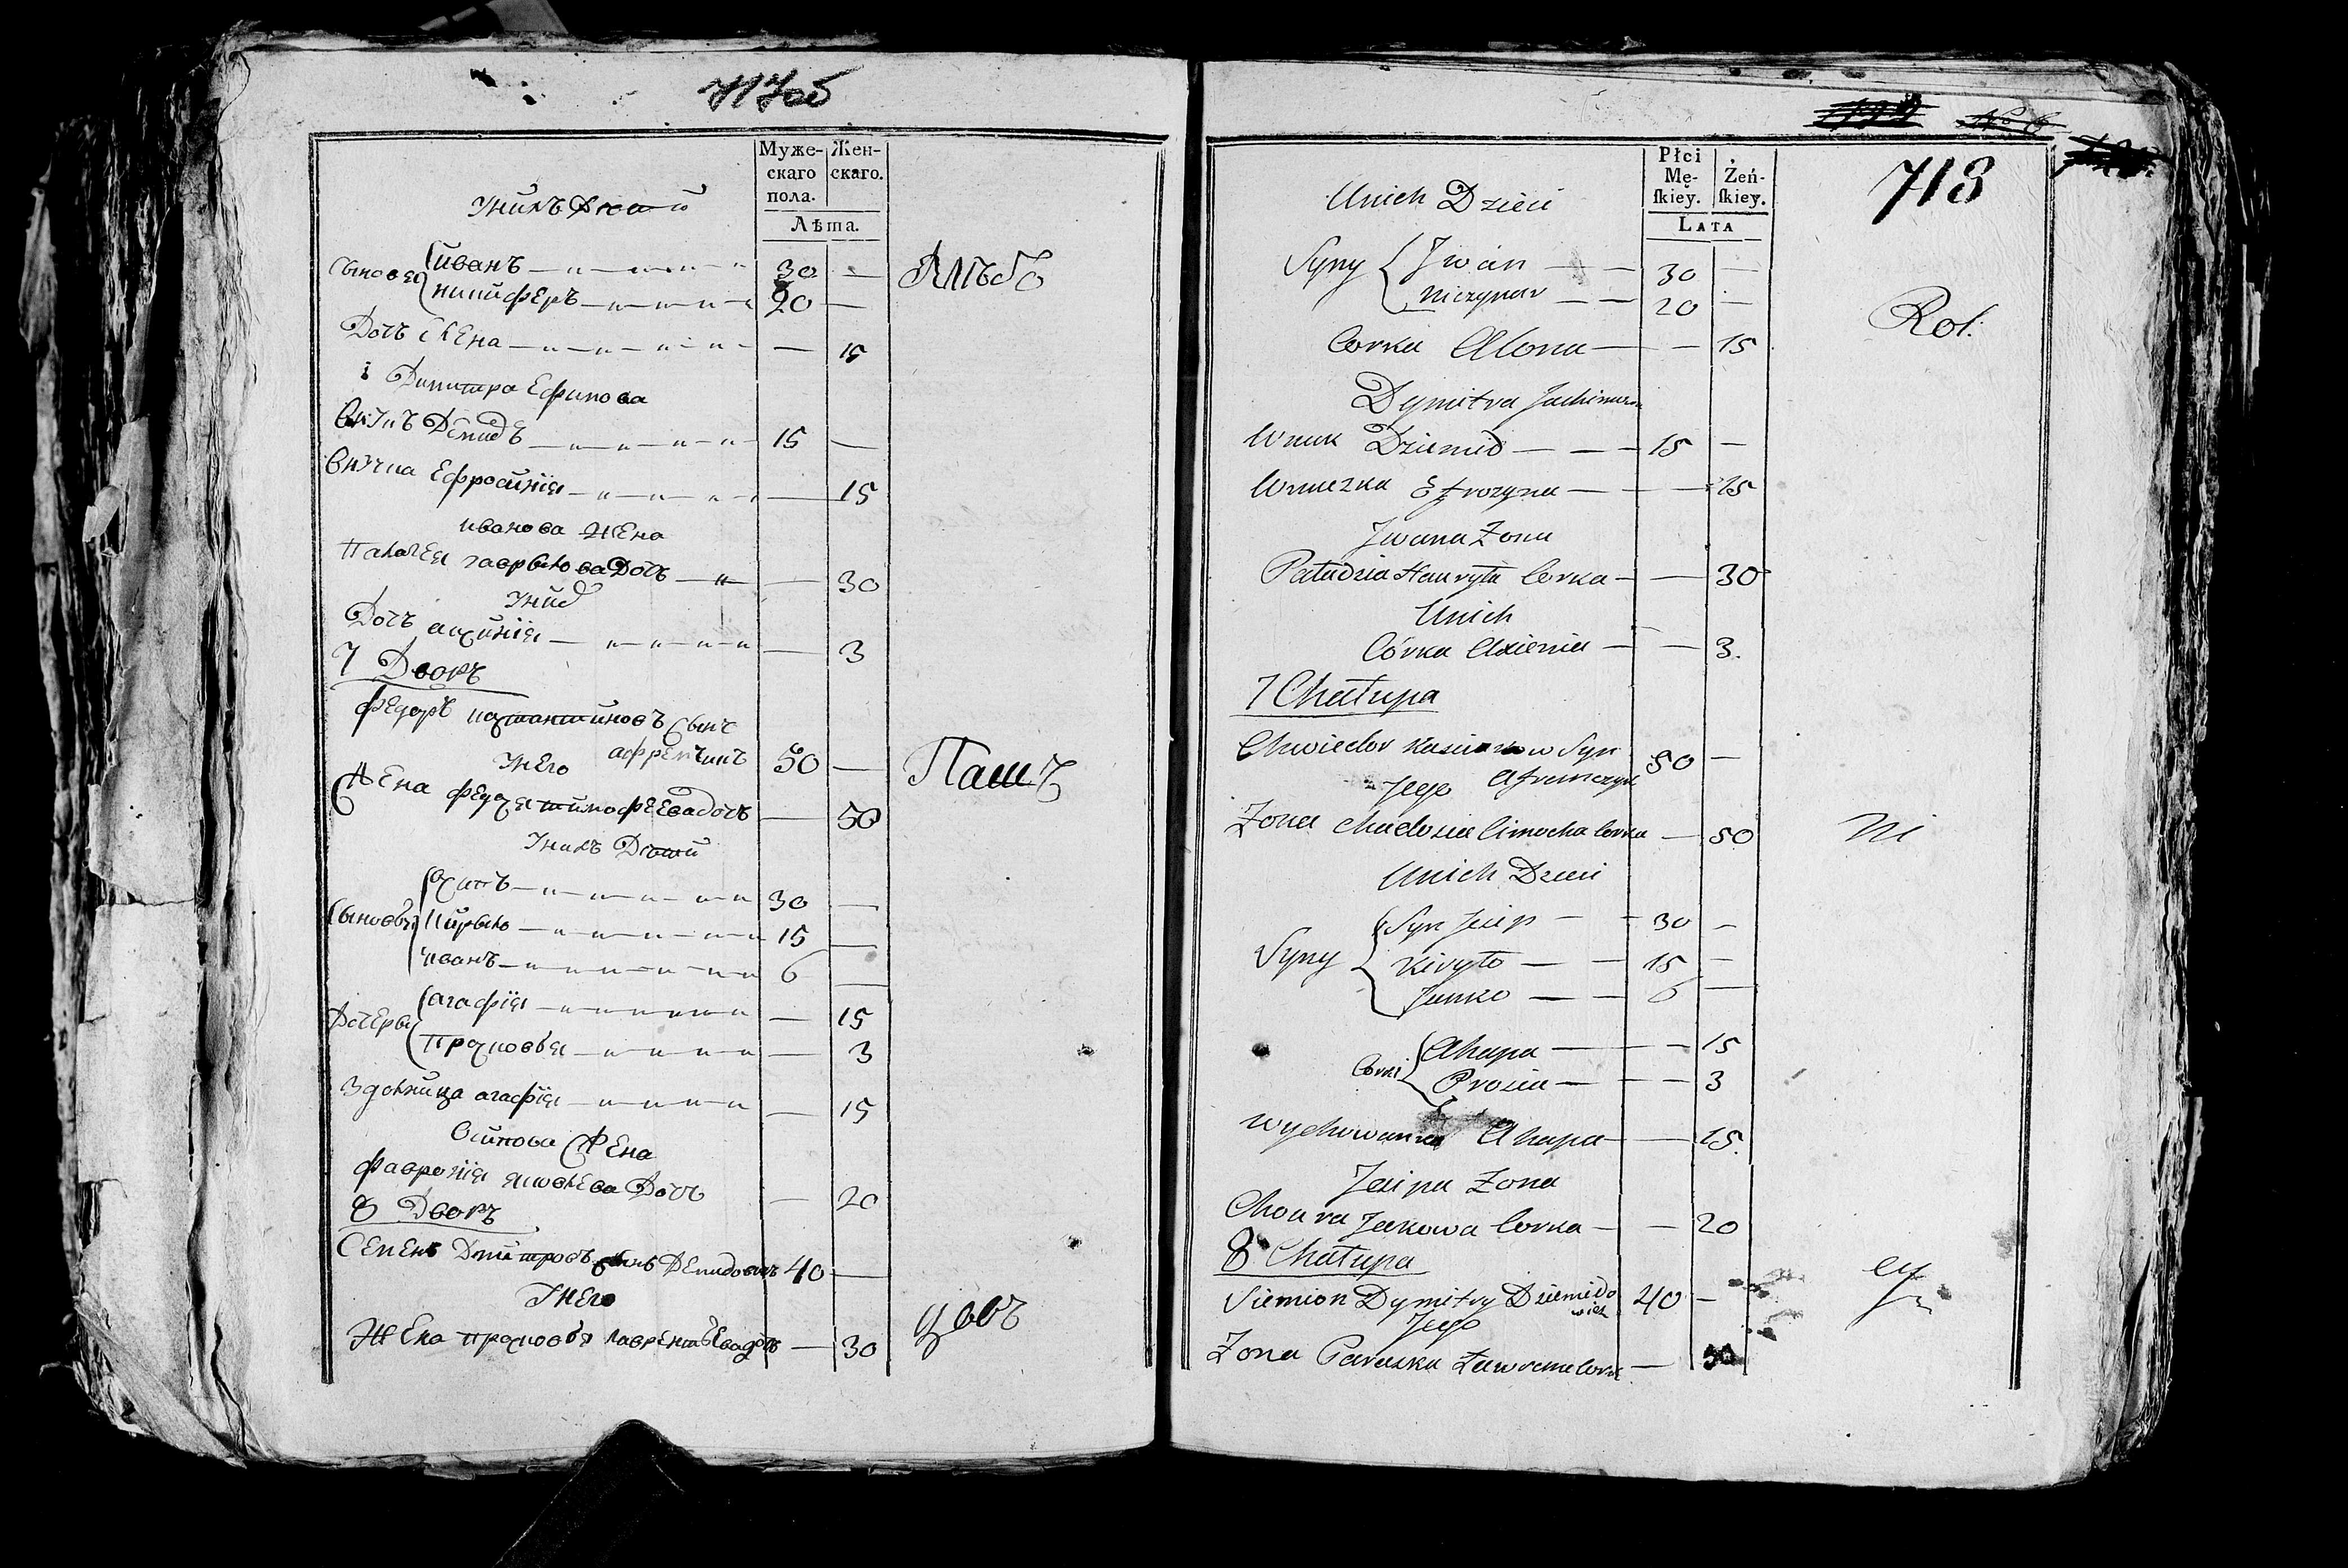 717об
Муже- Жен-
скаго скаго.
пола.
Лѣта.
Унихъ Дети
Сыновя Иванъ 30 —
Никифоръ 20 —
Дочь Алена — 15
Димитра Ефимова
Внукъ Демидъ 15 —
Внучка Ефросинiя — 15
Иванова жена
Палагея гаврылова Дочь — 30
Унихъ
Дочь аксинiя — 3
7 Дворъ
Федоръ Сынъ
афремчикъ 50 —
Унего
Жена Федося тимофеева дочь — 50
Унихъ Дети
Сыновья Осипъ 30 —
Кирыло 15 —
Иванъ 6 —
Дочеры агафiя — 15
Прасковья — 3
агафiя — 15
Осипова Жена
Фавронiя яковлева Дочь — 20
8 Дворъ
Семенъ Дмитровъ сынъ Демидовичъ 40 —
Унего
Жена прасковья лаврентьева дочь — 30
Пашъ
713
Płci
Mę- Żeń-
ſkiey. ſkiey.
LATA
Unich Dzieci
Syny Jwan 30 —
Niczypar 20 —
Corka Alona — 15
Dymitra Jachimowa
Wnuk Dziemid 15 —
Wnuczka Efrozyna — 15
Jwana Żona
Paładzia Hauryła Corka — 30
Unich
Córka Axienia — 3.
7 Chałupa
Chwiedor Syn
Afremczyk 50 —
Jego
Żona Chwedosia Cimocha Corka — 50
Unich Dzieci
Syny Syn Jesip 30 —
Kiryło 15 —
Janko 6 —
Corki Ahapa — 15
Prosia — 3
Wychowanka Ahapa — 15.
Jesipa Żona
Choura Jakowa Corka — 20
8 Chałupa
Siemion Dymitry Dziemido
wicz 40 —
Jego
Żona Paraska Ławrena Corka — 30
Rol:
ni
cy